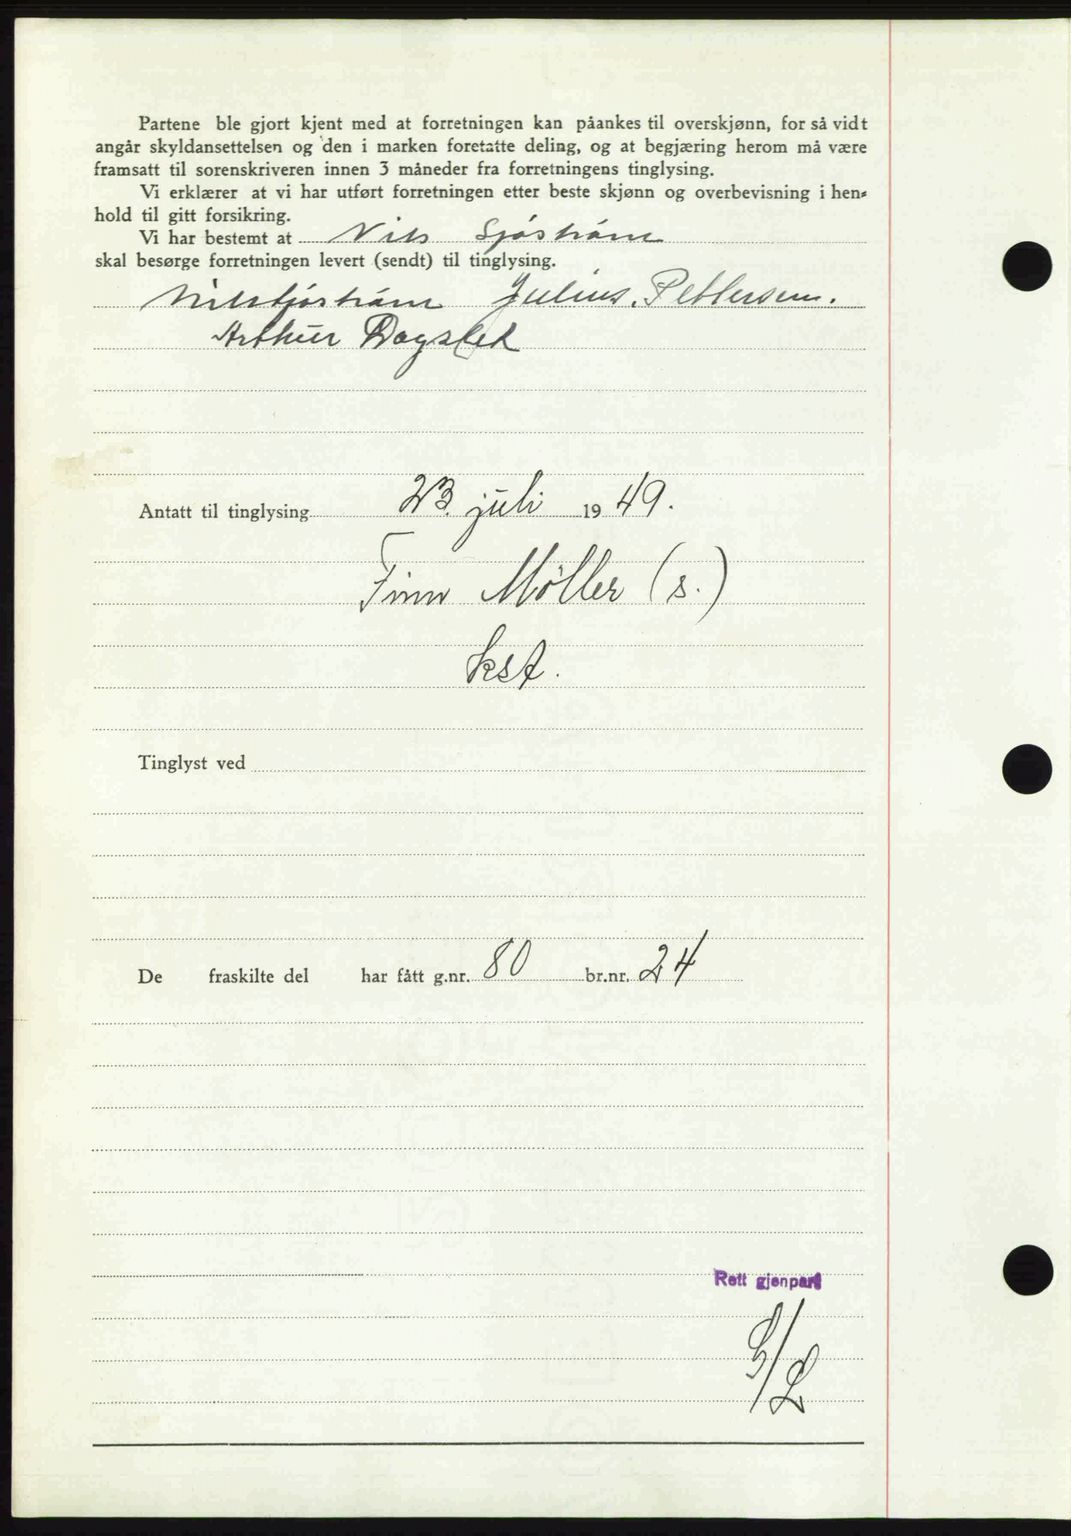 Partene ble gjort kjent med at forretningen kan påankes til overskjønn, for så vidt
angår skyldansettelsen og den i marken foretatte deling, og at begjæring herom må være
framsatt til sorenskriveren innen 3 måneder fra forretningens tinglysing.
Vi erklærer at vi har utført forretningen etter beste skjønn og overbevisning i hen-
hold til gitt forsikring.
Vi har bestemt at Nils Sjöström
skal besørge forretningen levert (sendt) til tinglysing.
Nils Sjöström Julius. Pettersen.
Arthur Dagsled
Antatt til tinglysing 23. juli 1949.
Finn Möller (s.)
kst.
Tinglyst ved
De fraskilte del har fått g.nr. 80 br.nr. 24
Rett gjenpart